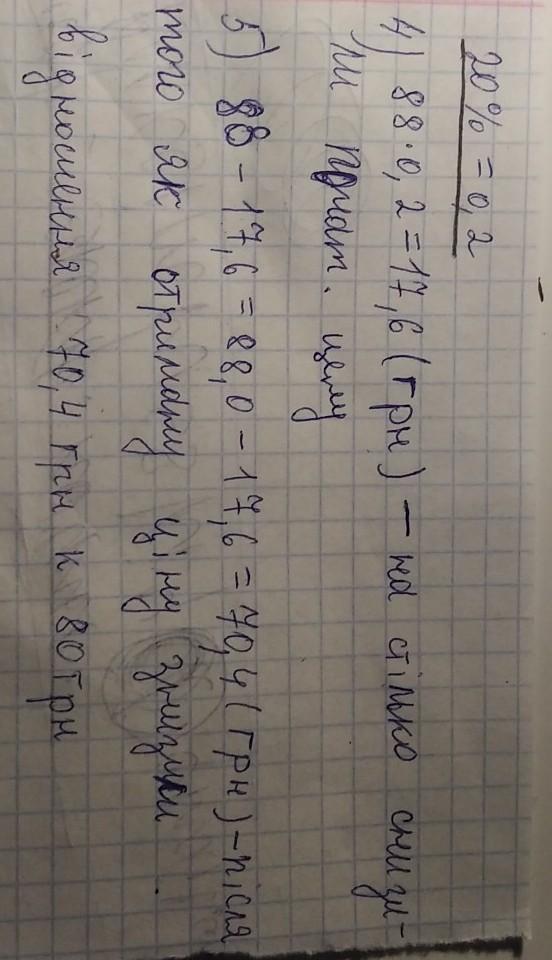 20% = 0,2
4) 88·0,2 = 17,6 (грн) – на стілько снизи-
ли початк. цену
5) 88 – 17,6 = 88,0 – 17,6 = 70,4 (грн) – після
того як отриману ціну знизили.
відношення 70,4 грн к 80 грн